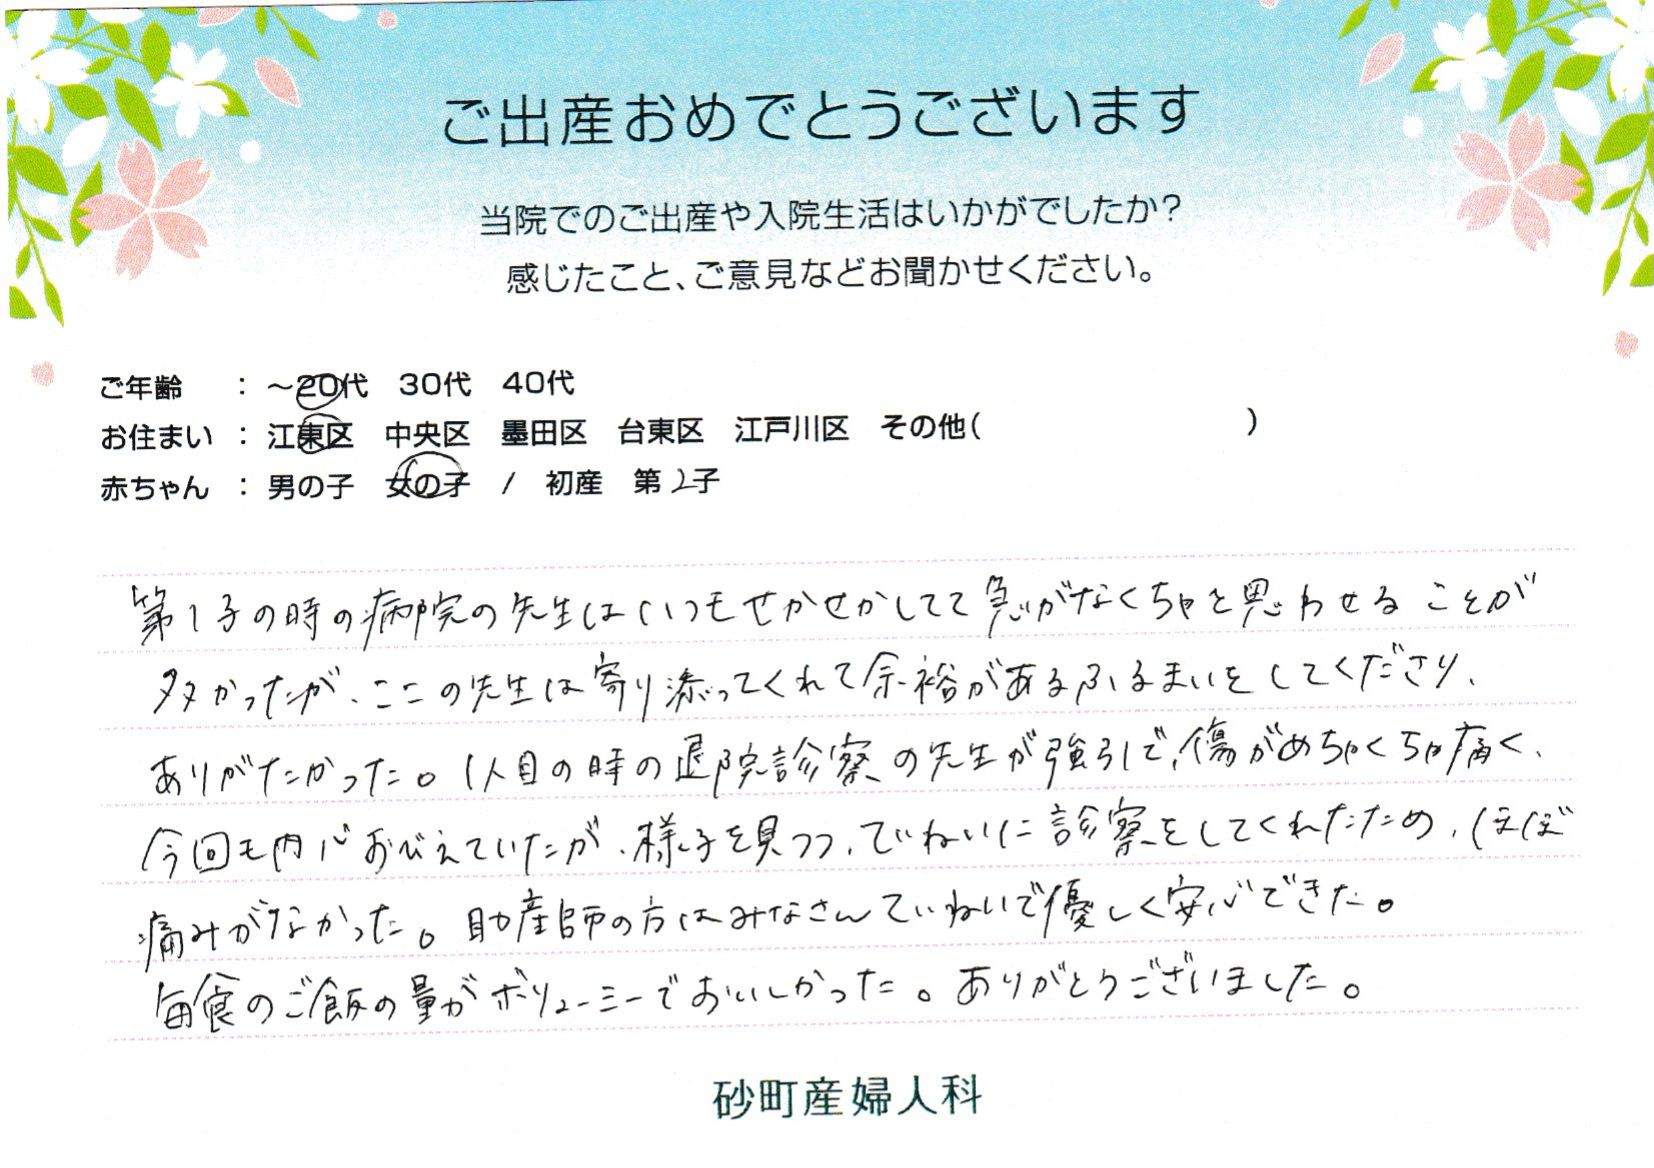 ご出産おめでとうございます
当院でのご出産や入院生活はいかがでしたか?
感じたこと、ご意見などお聞かせください。
ご年齢 : ～20代 30代 40代
お住まい : 江東区 中央区 墨田区 台東区 江戸川区 その他( )
赤ちゃん : 男の子 女の子 / 初産 第2子
第1子の時の病院の先生はいつもせかせかしてて急がなくちゃと思わせることが
多かったが、ここの先生は寄り添ってくれて余裕があるふるまいをしてくださり、
ありがたかった。1人目の時の退院診察の先生が強引で、傷がめちゃくちゃ痛く、
今回も内心おびえていたが、様子を見つつ、ていねいに診察をしてくれたため、ほぼ
痛みがなかった。助産師の方はみなさんていねいで優しく安心できた。
毎食のご飯の量がボリューミーでおいしかった。ありがとうございました。
砂町産婦人科